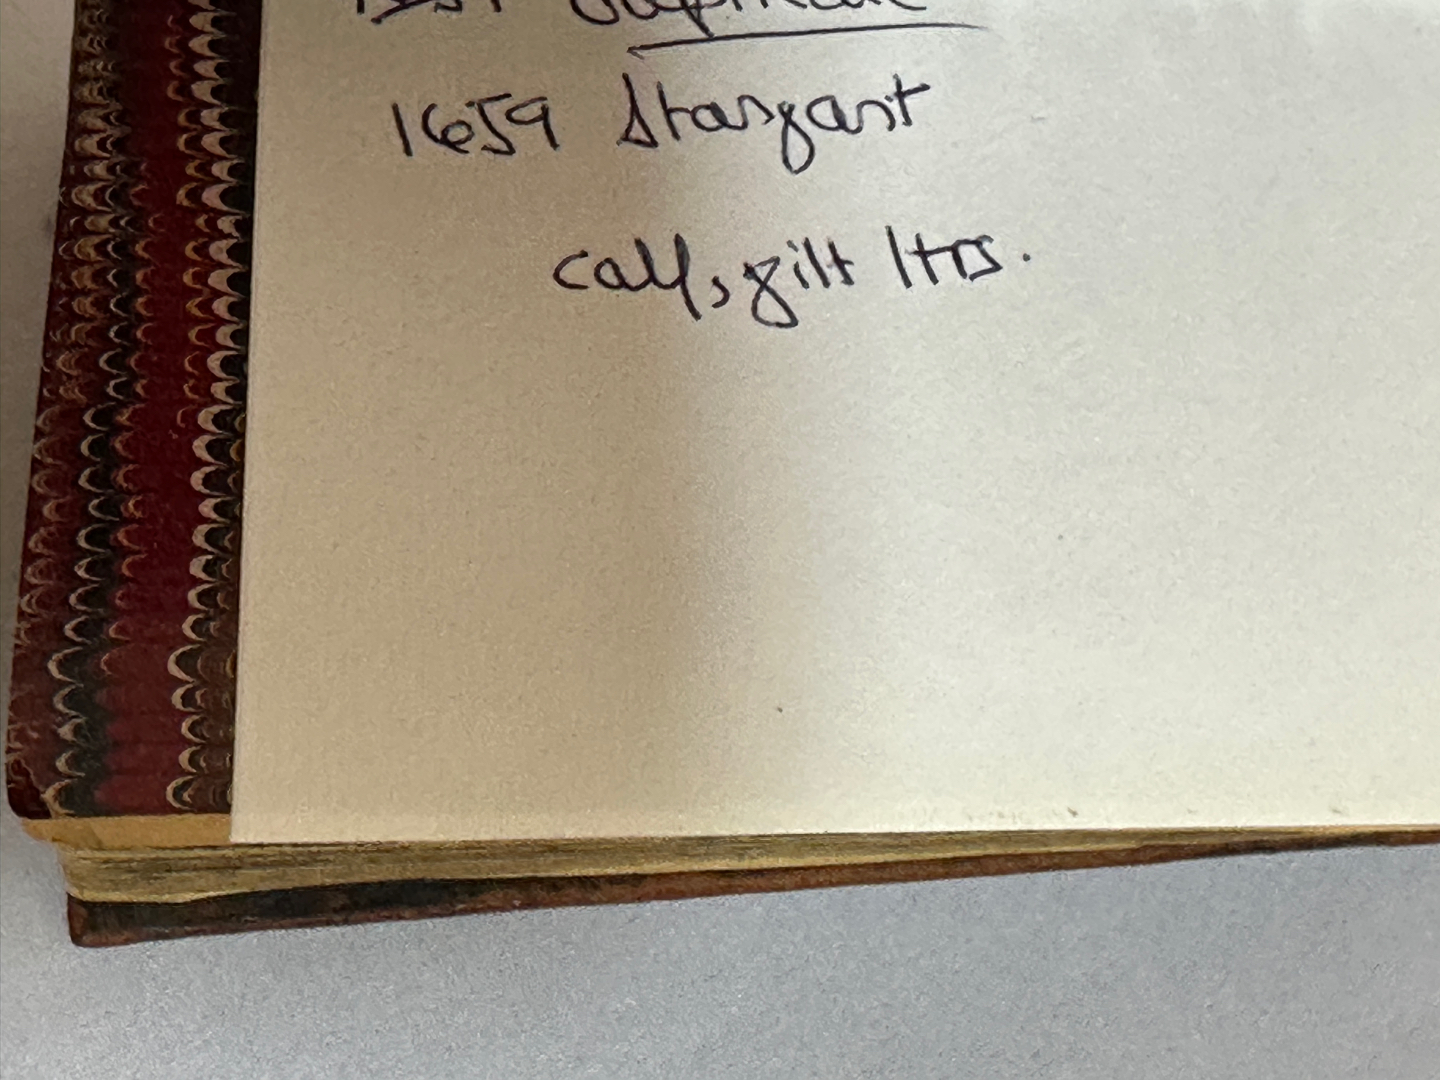 1659 Stargart
calf, gilt ltrs.